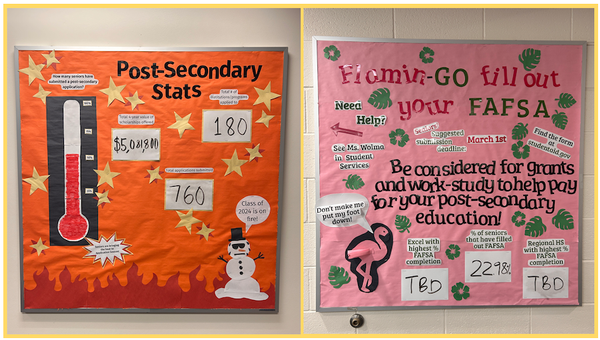 Post-Secondary
Stats
How many seniors have
submitted a post-secondary
application?
Total $ value of
scholarships offered
$5,081,800
Total # of
institutions/programs
applied to
180
Total applications submitted
760
Class of
2024 is on
fire!
Flamin-GO fill out
your FAFSA
Need
Help?
See Ms. Wolma
in Student
Services.
Seniors
Suggested
submission
deadline:
March 1st
Find the form
at
studentaid.gov
Be considered for grants
and work-study to help pay
for your post-secondary
education!
Don't make me
put my foot
down!
Excel with
highest %
FAFSA
completion
TBD
% of seniors
that have filled
out FAFSA
Regional HS
with highest %
FAFSA
completion
TBD